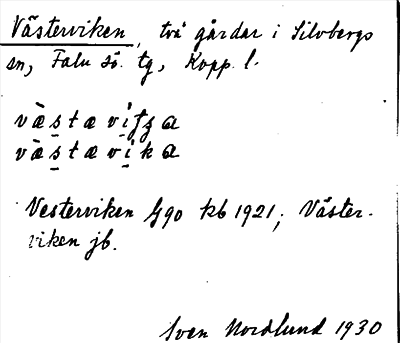 Västerviken, två gårdar i Silvbergs
sn, Falu sö. tg, Kopp. l.
væ̀stævi
væ̀stævika
Vesterviken Gg 90 kb 1921; Väster-
viken jb.
Sven Nordlund 1930